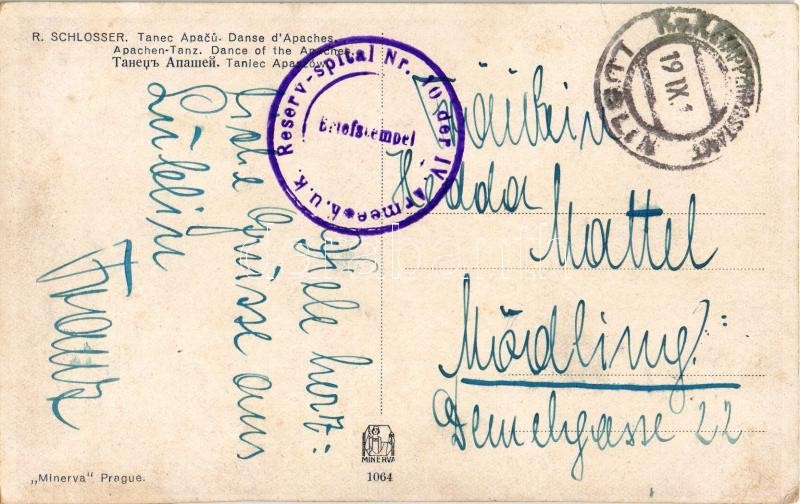 R. SCHLOSSER. Tanec Apačů. Danse d'Apaches.
Apachen-Tanz. Dance of the Apaches.
Танецъ Апашей. Taniec Apaszów.
K. u. K. Reserv-spital Nr. 10 der IV. Armee
Briefstempel
K.u.K. ETAPPENPOSTAMT
LUBLIN
19 IX
Fräulein
Hedda
Mattel
Mödling:
22
Viele herz:
liche Grüsse aus
Lublin
Franz
MINERVA
1064
„Minerva" Prague.
darabanth